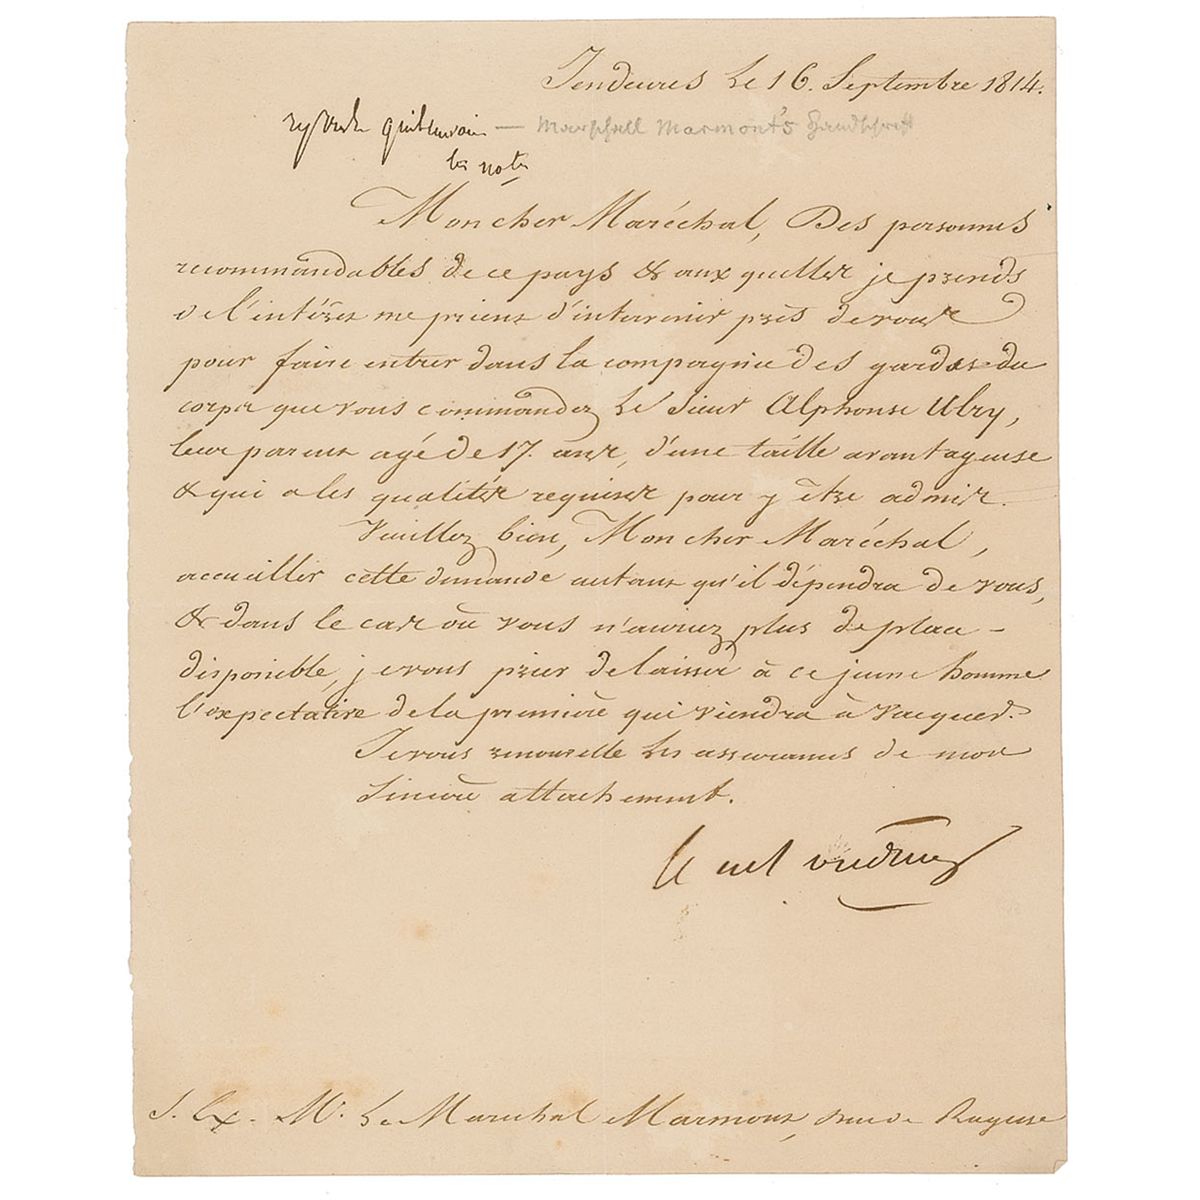 Jendeures Le 16. Septembre 1814.
— Marschall Marmont's Handschrift
les notes
Mon cher Maréchal, Des personnes
recommandables de ce pays & aux quelles je prends
de l'intérêt me prient d'intervenir près de vous
pour faire entrer dans la compagnie des gardes du
corps que vous commandez Le Sieur Alphonse Ulry,
leur parent agé de 17. ans, d'une taille avantageuse
& qui a les qualités requises pour y être admis.
Veuillez bien, Mon cher Maréchal,
accueillir cette demande autant qu'il dépendra de vous,
& dans le cas où vous n'auriez plus de place
disponible, je vous prie de laisser à ce jeune homme
l'expectative de la première qui viendra à vacquer.
Je vous renouvelle les assurances de mon
sincère attachement.
le mal oudinot
S. Ex. Mr. Le Maréchal Marmont, duc de Raguse